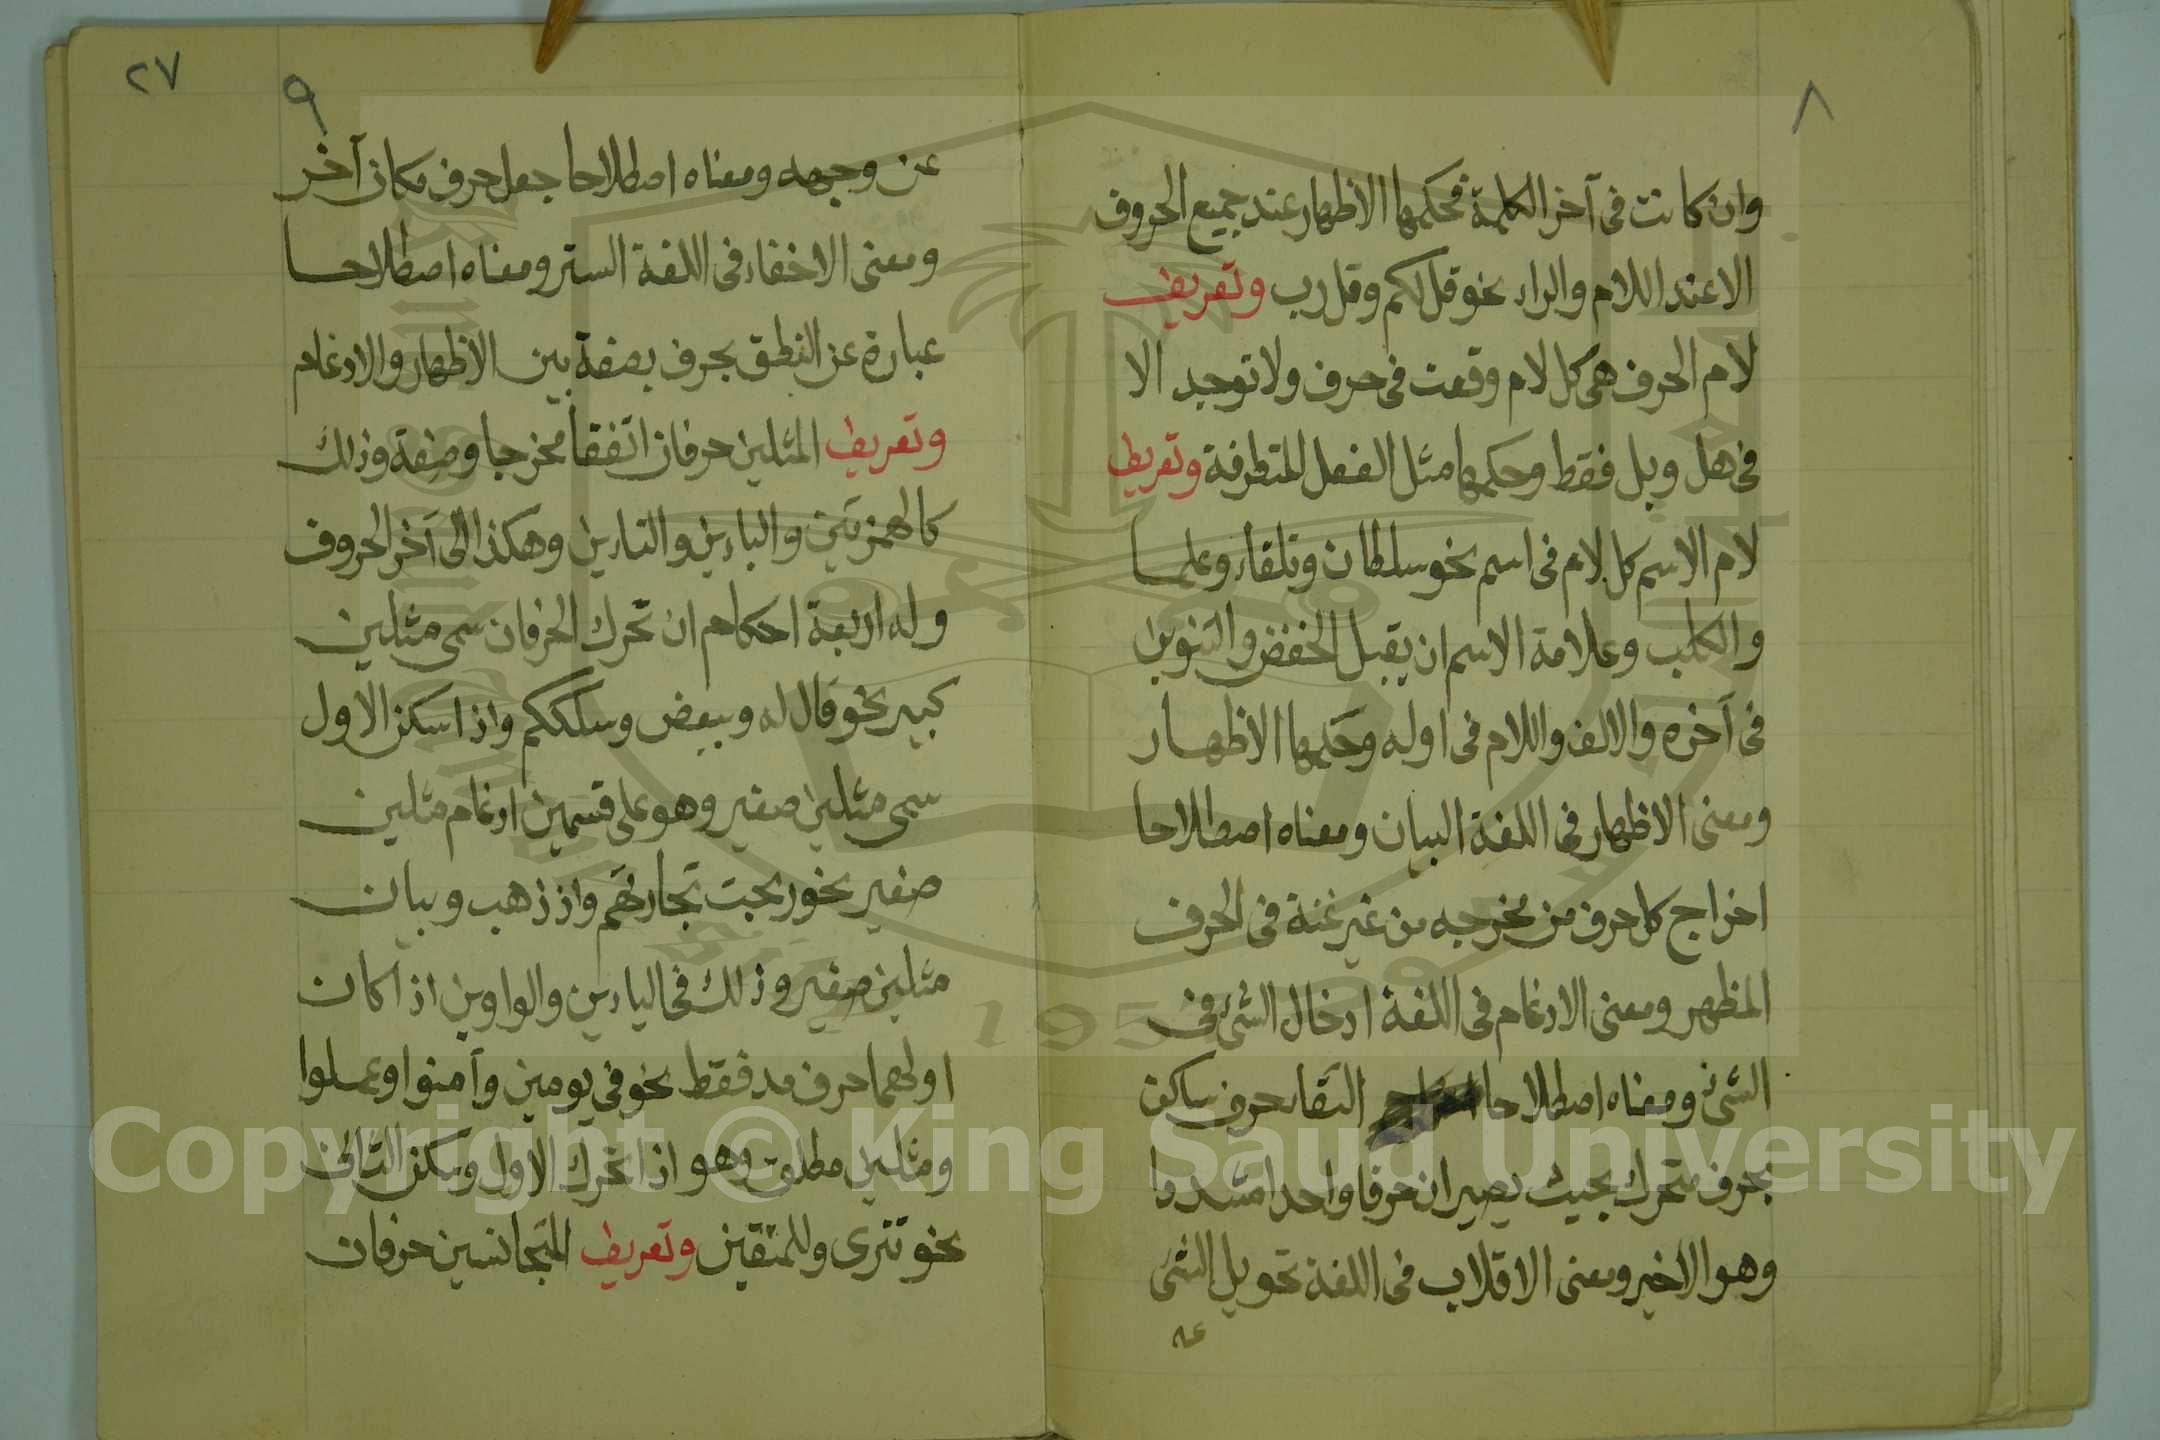 ٨
وان كانت فى آخر الكلمة فحكمها الاظهار عند جميع الحروف
الا عند اللام والراء نحو قل لكم وقل رب وتعريف
لام الحرف هى كل لام وقعت فى حرف ولا توجد الا
فى هل وبل فقط وحكمها مثل الفعل المتطرفة وتعريف
لام الاسم كل لام فى اسم نحو سلطان وتلقاء وعلما
والكلب وعلامة الاسم ان يقبل الخفض والتنوين
فى آخره والالف واللام فى اوله وحكمها الاظهار
ومعنى الاظهار فى اللغة البيان ومعناه اصطلاحا
اخراج كل حرف من مخرجه من غير غنة فى الحرف
المظهر ومعنى الادغام فى اللغة ادخال الشئ فى
الشئ ومعناه اصطلاحا التقاء حرف ساكن
بحرف متحرك بحيث يصيران حرفا واحدا مشددا
وهو الاخير ومعنى الاقلاب فى اللغة تحويل الشئ
عن
٢٧
٩
عن وجهه ومعناه اصطلاحا جعل حرف مكان آخر
ومعنى الاخفاء فى اللغة الستر ومعناه اصطلاحا
عبارة عن النطق بحرف بصفة بين الاظهار والادغام
وتعريف المثلين حرفان اتفقا مخرجا وصفة وذلك
كالهمزتين والباءين والتاءين وهكذا الى آخر الحروف
وله اربعة احكام ان تحرك الحرفان سمى مثلين
كبير نحو قال له وسلككم واذا سكن الاول
سمى مثلين صغير وهو على قسمين ادغام مثلين
صغير نحو ربحت تجارتهم واذ ذهب وبيان
مثلين صغير وذلك فى الياءين والواوين اذا كان
اولهما حرف مد فقط نحو فى يومين وآمنوا وعملوا
ومثلين مطلق وهو اذا تحرك الاول وسكن الثانى
نحو تترى وللمتقين وتعريف المتجانسين حرفان
Copyright © King Saud University